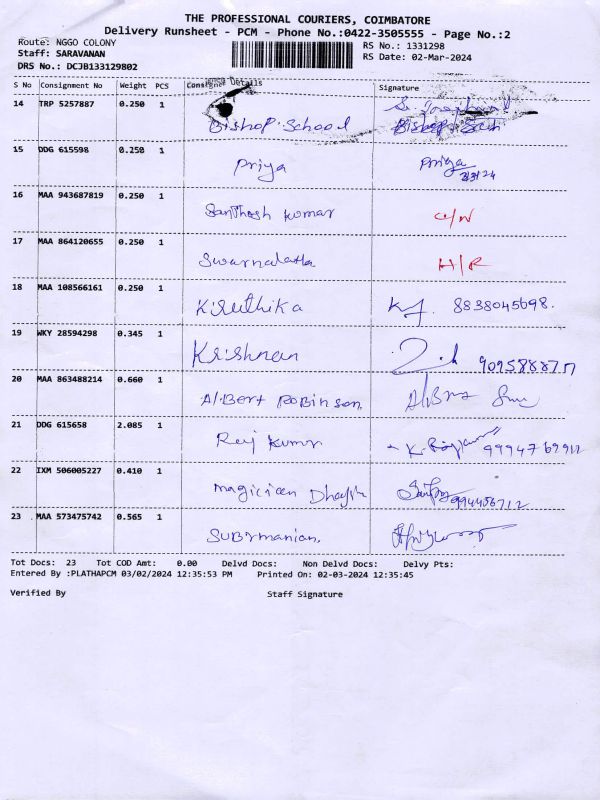 THE PROFESSIONAL COURIERS, COIMBATORE
Delivery Runsheet - PCM - Phone No.:0422-3505555 - Page No.:2
Route: NGGO COLONY
Staff: SARAVANAN
DRS No.: DCJB133129802
RS No.: 1331298
RS Date: 02-Mar-2024
S No Consignment No Weight PCS Consignee Details Signature
14 TRP 5257887 0.250 1 Bishop. School Bishop
15 DDG 615598 0.250 1 Priya Priya
16 MAA 943687819 0.250 1 Santhosh kumar C/N
17 MAA 864120655 0.250 1 Swarnalatha H/R
18 MAA 108566161 0.250 1 Kiruthika 8838045698.
19 WKY 28594298 0.345 1 Krishnan
20 MAA 863488214 0.660 1 Al.Bert Robinson.
21 DDG 615658 2.085 1 Raj kumar
22 IXM 506005227 0.410 1 magician 994456712
23 MAA 573475742 0.565 1 SUBrmanian.
Tot Docs: 23 Tot COD Amt: 0.00 Delvd Docs: Non Delvd Docs: Delvy Pts:
Entered By :PLATHAPCM 03/02/2024 12:35:53 PM Printed On: 02-03-2024 12:35:45
Verified By Staff Signature